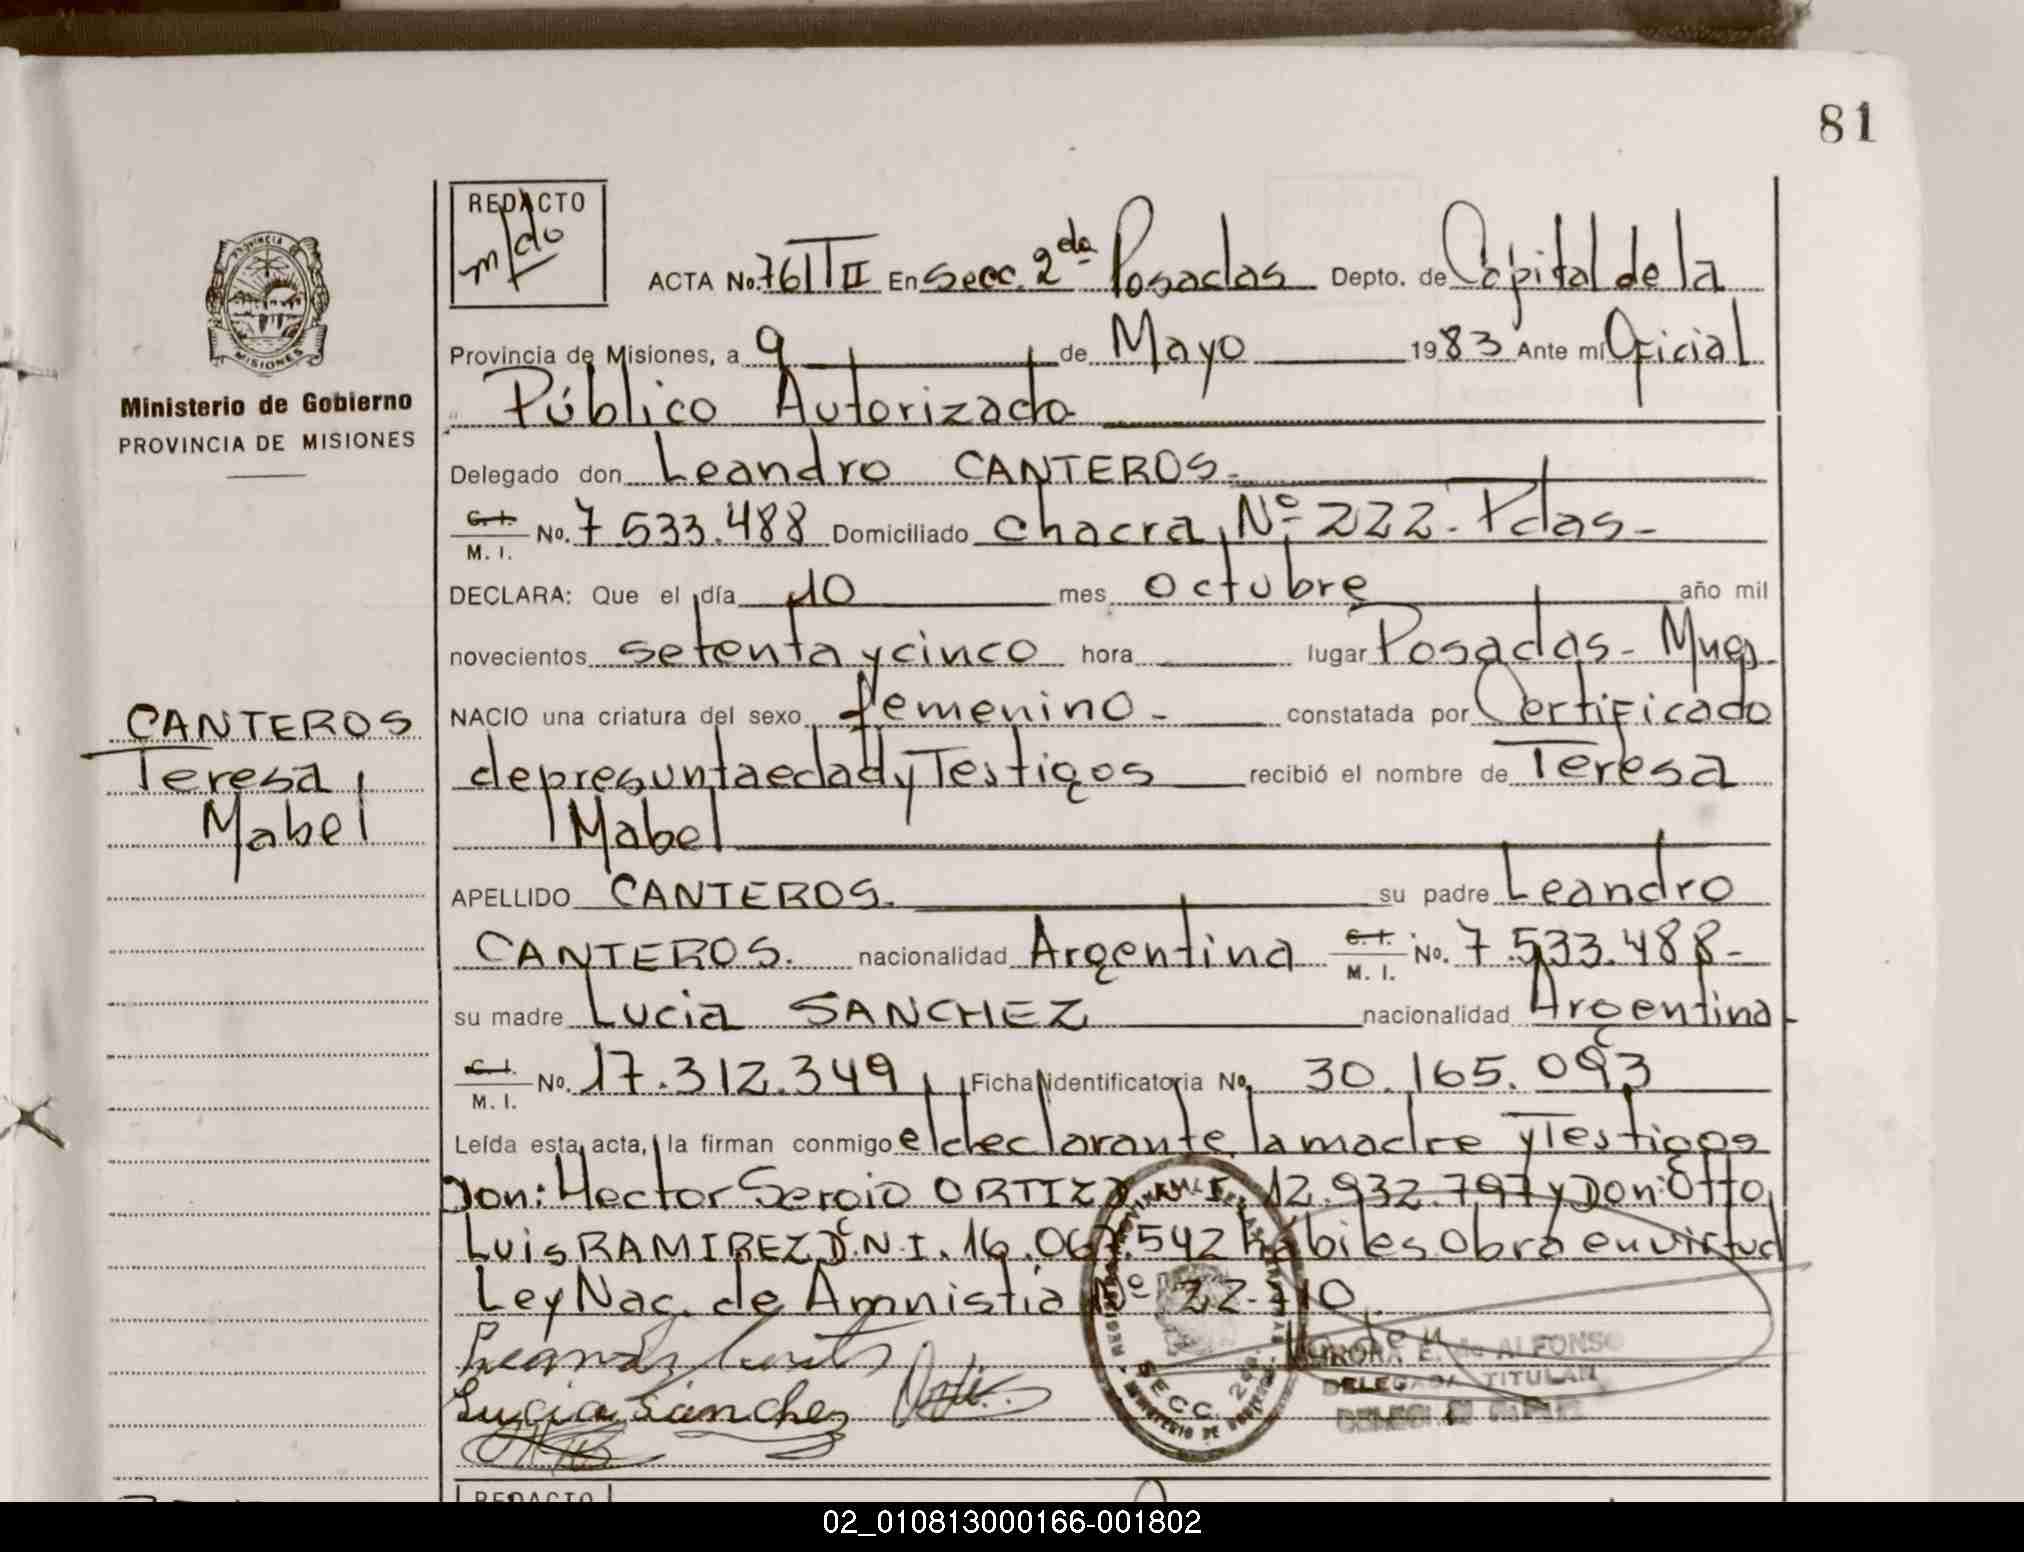 81
REDACTO
m/do
ACTA No. 761 T II En Secc. 2da Posadas Depto. de Capital de la
Provincia de Misiones, a 9 de Mayo 1983 Ante mí Oficial
Público Autorizado
Delegado don Leandro CANTEROS.
C. I. / M. I. No. 7.533.488 Domiciliado chacra Nº 222. Pdas-
DECLARA: Que el día 10 mes octubre año mil
novecientos setenta y cinco hora lugar Posadas- Mnes
NACIO una criatura del sexo femenino- constatada por Certificado
de presunta edad y Testigos recibió el nombre de Teresa
Mabel
APELLIDO CANTEROS. su padre Leandro
CANTEROS. nacionalidad Argentina C. I. / M. I. No. 7.533.488-
su madre Lucia SANCHEZ nacionalidad Argentina
C. I. / M. I. No. 17.312.349 Ficha identificatoria No. 30.165.093
Leída esta acta, la firman conmigo el declarante la madre y Testigos
Don: Hector Sergio ORTIZ 12.932.797 y Don: Otto
Luis RAMIREZ D.N.I. 16.067.542 hábiles obra en virtud
Ley Nac. de Amnistía Nº 22.410
Lucia Sanchez
SECC. 2da.
E. de ALFONSO
DELEGADA TITULAR
PROVINCIA DE MISIONES
Ministerio de Gobierno
PROVINCIA DE MISIONES
CANTEROS
Teresa
Mabel
REDACTO
02_010813000166-001802